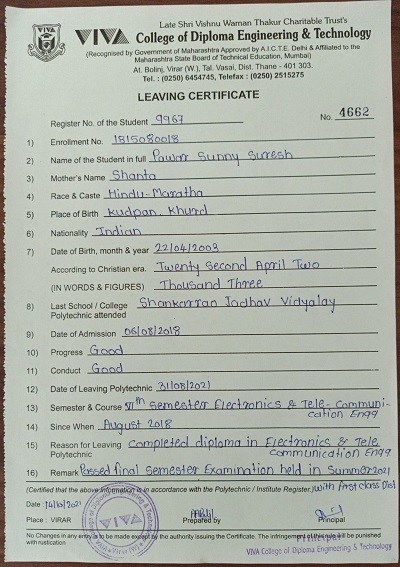 Late Shri Vishnu Waman Thakur Charitable Trust's
VIVA College of Diploma Engineering & Technology
(Recognised by Government of Maharashtra Approved by A.I.C.T.E. Delhi & Affiliated to the
Maharashtra State Board of Technical Education, Mumbai)
At. Bolinj, Virar (W.), Tal. Vasai, Dist. Thane - 401 303.
Tel. : (0250) 6454745, Telefax : (0250) 2515275
LEAVING CERTIFICATE
Register No. of the Student 9967 No. 4662
1) Enrollment No. 1815080018
2) Name of the Student in full Pawar Sunny Suresh
3) Mother's Name Shanta
4) Race & Caste Hindu-Maratha
5) Place of Birth Kudpan Khurd
6) Nationality Indian
7) Date of Birth, month & year 22/04/2003
According to Christian era. Twenty Second April Two
(IN WORDS & FIGURES) Thousand Three
8) Last School / College Shankarrao Jadhav Vidyalay
Polytechnic attended
9) Date of Admission 06/08/2018
10) Progress Good
11) Conduct Good
12) Date of Leaving Polytechnic 31/08/2021
13) Semester & Course VIth Semester Electronics & Tele-Communi-
cation Engg
14) Since When August 2018
15) Reason for Leaving Completed diploma in Electronics & Tele
Polytechnic Communication Engg
16) Remark Passed final Semester Examination held in Summer 2021
(Certified that the above Information is in accordance with the Polytechnic / Institute Register) with First class Dist
Date :
Place : VIRAR Prepared by Principal
No Changes in any entry is to be made except by the authority issuing the Certificate. The infringement of this rule will be punished
with rustication
Principal
VIVA College of Diploma Engineering & Technology